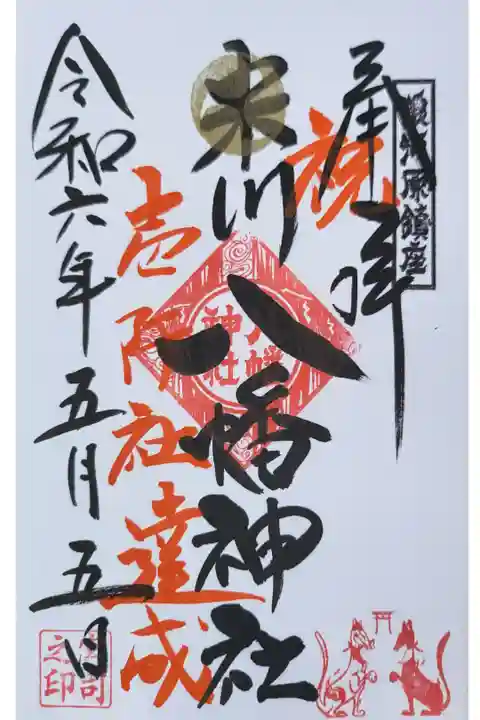 原鎮座
奉拝
祝
川八幡神社
八幡
神社
壱阡社達成
令和六年五月五日
宮司
之印